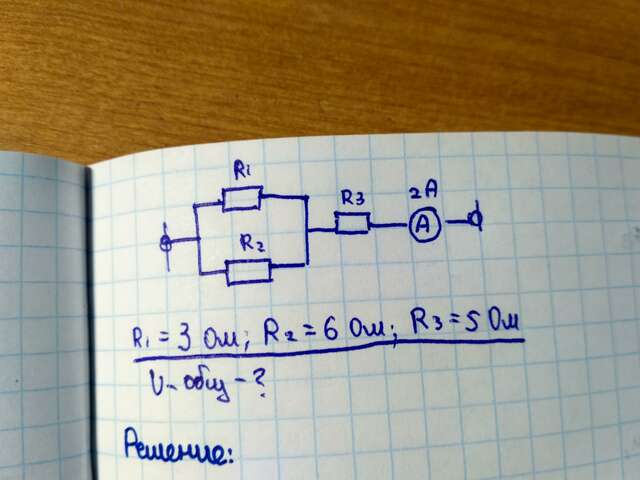 R1
R3
2A
A
R2
R1 = 3 Ом; R2 = 6 Ом; R3 = 5 Ом
U - общ - ?
Решение: